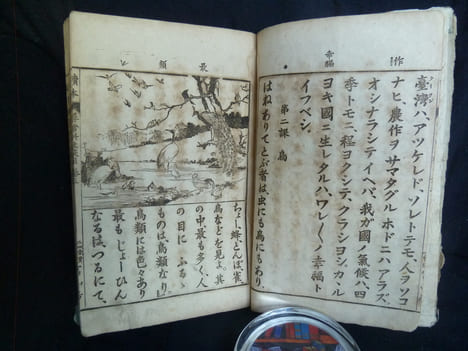 作
幸福
臺灣ハ、アツケレド、ソレトテモ、人ヲソコ
ナヒ、農作ヲ サマタグル ホドニハ アラズ。
オシナラシテイヘバ、我ガ國ノ氣候ハ、四
季トモニ、程ヨクシテ、クラシヨシ。カヽル
ヨキ國ニ生レタルハ、ワレ〳〵ノ幸福ト
イフベシ。
第二課 鳥
はねありてとぶ者は、虫にも鳥にもあり。
最
類
ちょー、蜂、とんぼ、雀、
烏などを見よ。其
の中、最も多く、人
の目に ふるゝ
ものは鳥類なり。
鳥類には色々あり
最も じょーひん
なるは、つるにて、